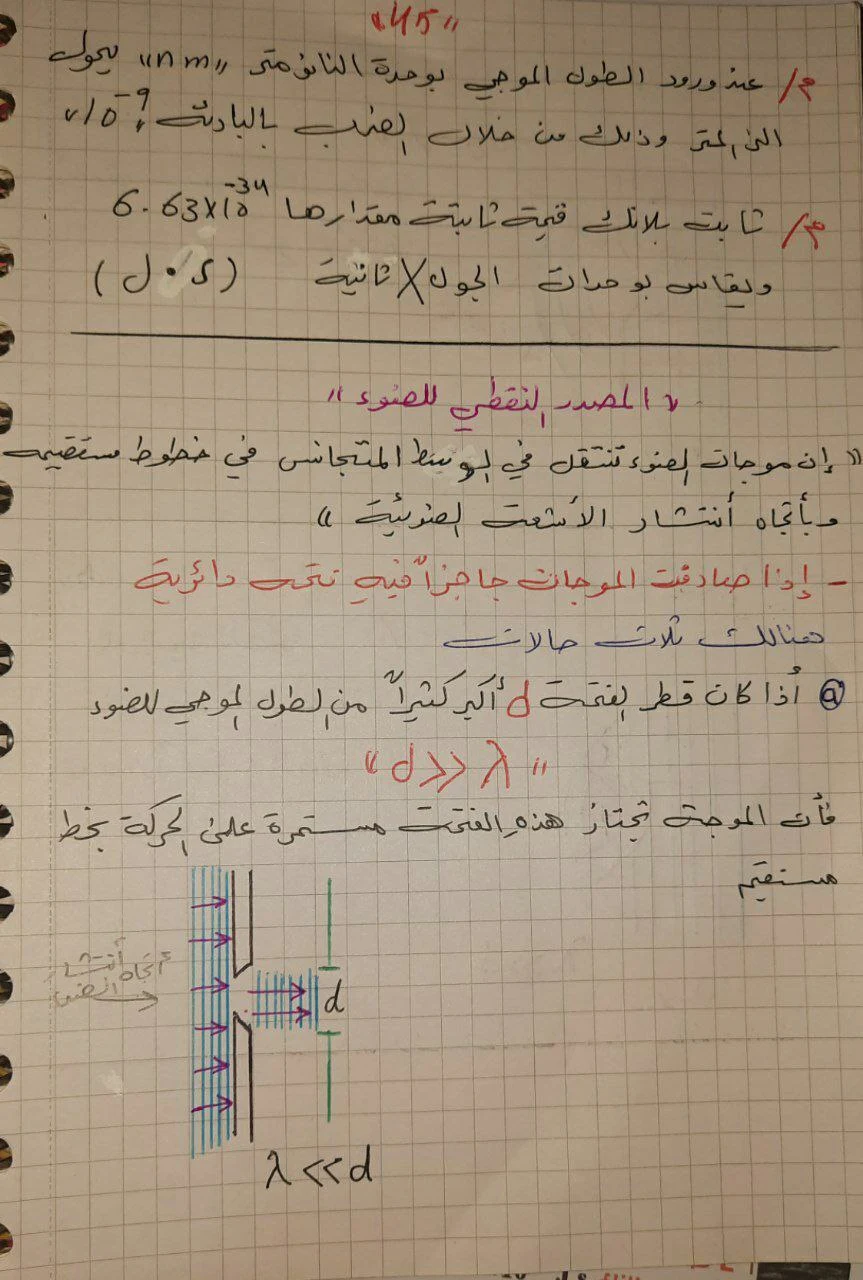 "45"
م/ عند ورود الطول الموجي بوحدة النانومتر "nm" يحول
الى المتر وذلك من خلال الضرب بالبادئة "10⁻⁹"
م/ ثابت بلانك قيمة ثابتة مقدارها 6.63×10⁻³⁴
ويقاس بوحدات الجول X ثانية (J.s)
"المصدر النقطي للضوء"
"إن موجات الضوء تنتقل في الوسط المتجانس في خطوط مستقيمه
وبأتجاه أنتشار الأشعة الضوئية"
- إذا صادفت الموجات حاجزاً فيه فتحه دائرية
هنالك ثلاث حالات
ⓐ أذا كان قطر الفتحة d أكبر كثيراً من الطول الموجي للضوء
"d>>λ"
فأن الموجة تجتاز هذهِ الفتحة مستمرة على الحركة بخط
مستقيم
أتجاه أنتشار
الضوء
d
λ<<d